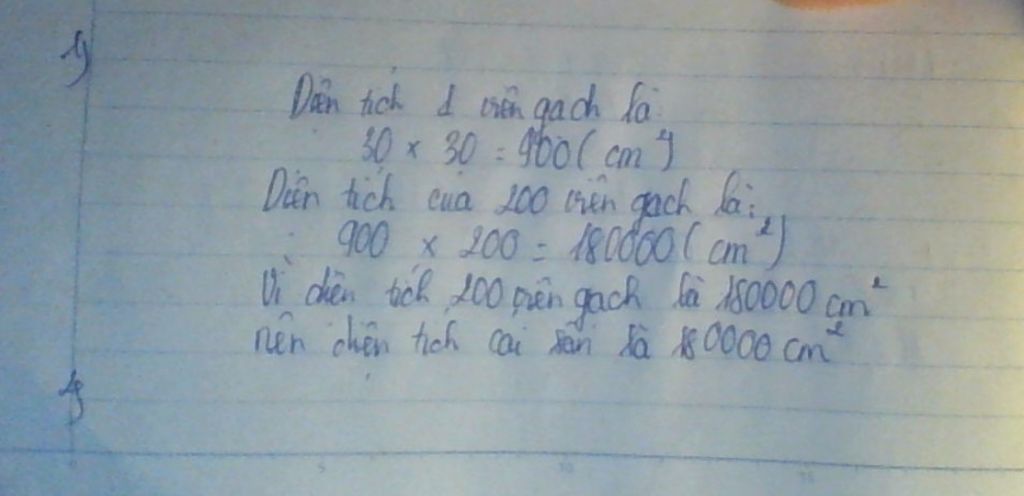 1)
Diện tích 1 viên gạch là
30 × 30 = 900 ( cm²)
Diện tích của 200 viên gạch là:
900 × 200 = 180000 ( cm²)
Vì diện tích 200 viên gạch là 180000 cm²
nên diện tích cái sân là 180000 cm²